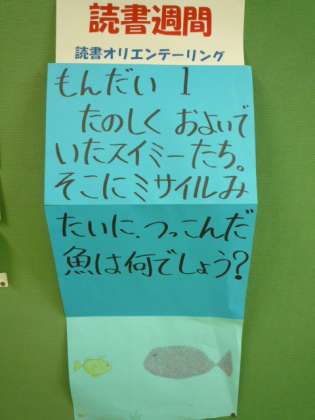 読書週間
読書オリエンテーリング
もんだい 1
たのしく およいで
いたスイミーたち。
そこにミサイルみ
たいに、つっこんだ
魚は何でしょう?